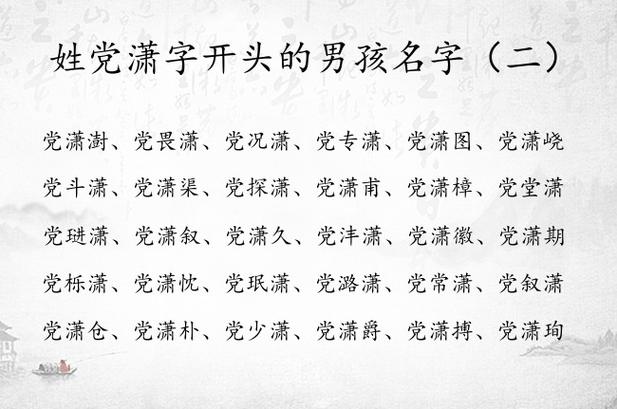 姓党潇字开头的男孩名字（二）
党潇澍、党畏潇、党况潇、党专潇、党潇图、党潇峣
党斗潇、党潇渠、党探潇、党潇甫、党潇樟、党堂潇
党琎潇、党潇叙、党潇久、党沣潇、党潇徽、党潇期
党栎潇、党潇忱、党珉潇、党潞潇、党常潇、党叙潇
党潇仓、党潇朴、党少潇、党潇爵、党潇搏、党潇珣